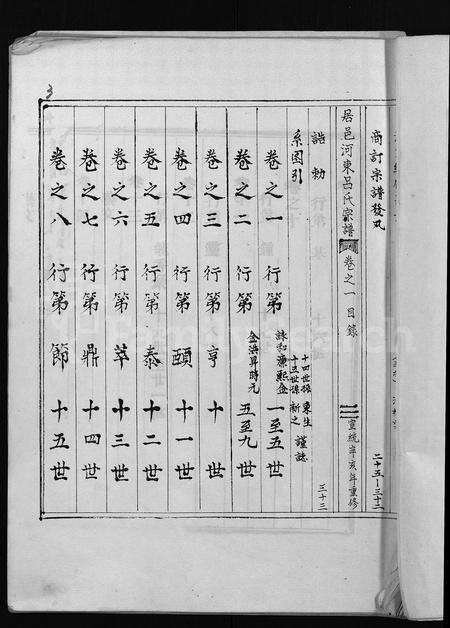 商訂宗譜發凡 二十五-三十二
居邑河東呂氏宗譜 卷之一 目錄 宣統辛亥年重修
誥勅 三十三
系图引 十四世孫 東生 十五世孫 新之 謹誌
卷之一 行第 詠和 廉熙金 一至五世
卷之二 行第 金浜昇時元 五至九世
卷之三 行第 亨 十世
卷之四 行第 頤 十一世
卷之五 行第 泰 十二世
卷之六 行第 萃 十三世
卷之七 行第 鼎 十四世
卷之八 行第 節 十五世
3